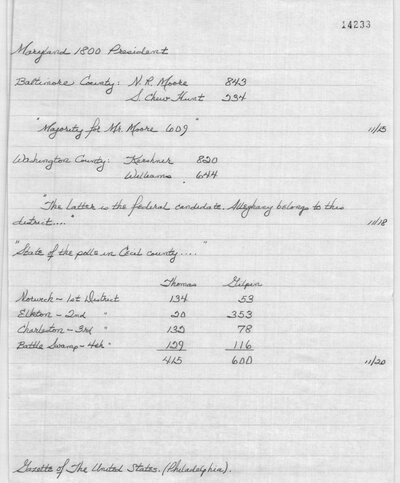 14233
Maryland 1800 President
Baltimore County: N. R. Moore 843
S. Chew Hunt 234
"Majority for Mr. Moore 609" 11/15
Washington County: Kershner 820
Williams 644
"The latter is the federal candidate. Alleghany belongs to this
district...." 11/18
"State of the polls in Cecil county...."
Thomas Gilpin
Norwick - 1st District 134 53
Elkton - 2nd " 20 353
Charleston - 3rd " 132 78
Battle Swamp - 4th " 129 116
415 600 11/20
Gazette of The United States. (Philadelphia).